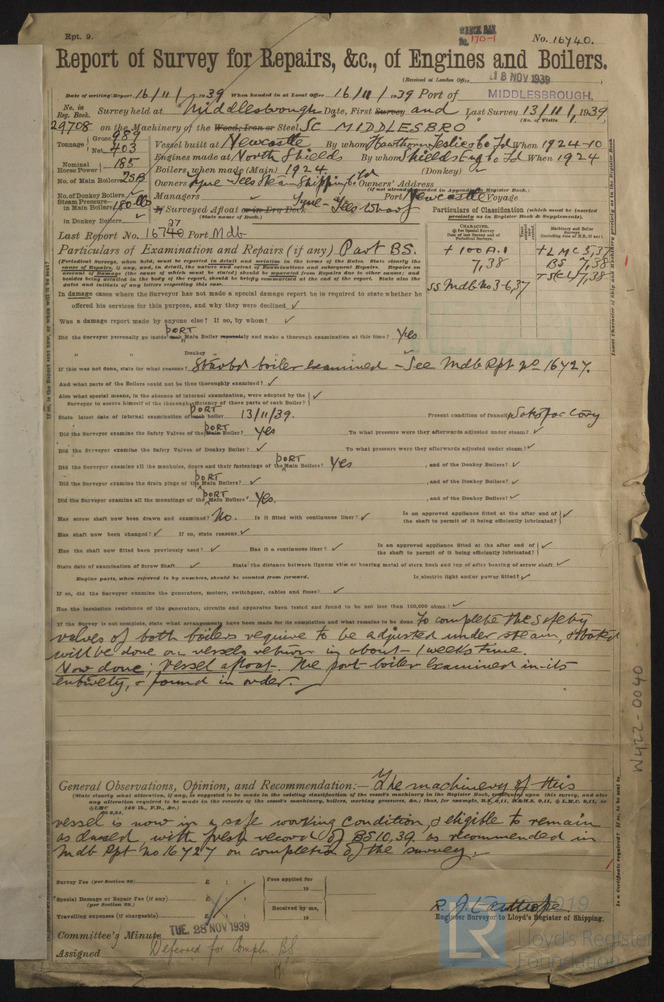 Rpt. 9.
No. 16740.
Report of Survey for Repairs, &c., of Engines and Boilers.
(Received at London Office
18 NOV 1939
Date of writing Report 16/11/1939 When handed in at Local Office 16/11/1939 Port of MIDDLESBROUGH.
No. in Reg. Book. Survey held at Middlesbrough Date, First Survey and Last Survey 13/11/1939
(No. of Visits
29708 on the Machinery of the Wood, Iron or Steel Sc MIDDLESBRO
Tonnage Gross 989 Net 403
Vessel built at Newcastle By whom Hawthorn Leslie & Co Ld When 1924-10
Engines made at North Shields By whom Shields Eng Co Ld When 1924
Nominal Horse Power 185
Boilers, when made (Main) 1924 (Donkey) ✓
No. of Main Boilers 2SB
Owners Tyne-Tees Steam Shipping Co Ltd Owners' Address
(If not already recorded in Appendix to Register Book.)
No. of Donkey Boilers ✓
Managers Port Newcastle Voyage
Steam Pressure—
in Main Boilers 180 lbs
If Surveyed Afloat or in Dry Dock Tyne-Tees Wharf
(State name of Dock.)
in Donkey Boilers ✓
Particulars of Classification (which must be inserted precisely as in Register Book & Supplements).
Last Report No. 16740 Port Mdb
37
+ 100 A.1
7,38
SS Mdb No 3-6,37
+ LMC 5,37
BS 7,38
TS CL 7,38
Particulars of Examination and Repairs (if any) Part BS.
In damage cases where the Surveyor has not made a special damage report he is required to state whether he
offered his services for this purpose, and why they were declined ✓
Was a damage report made by anyone else? If so, by whom? ✓
Did the Surveyor personally go inside each PORT Main Boiler separately and make a thorough examination at this time? Yes
" Donkey " " " ✓
If this was not done, state for what reasons? Starbd boiler examined - See Mdb Rpt No 16727.
And what parts of the Boilers could not be thus thoroughly examined? ✓
Also what special means, in the absence of internal examination, were adopted by the
Surveyor to assure himself of the thorough efficiency of those parts of each Boiler? ✓
State latest date of internal examination of each PORT boiler 13/11/39. Present condition of funnel Satisfactory
Did the Surveyor examine the Safety Valves of the PORT Main Boiler? Yes To what pressure were they afterwards adjusted under steam? ✓
Did the Surveyor examine the Safety Valves of Donkey Boiler? ✓ To what pressure were they afterwards adjusted under steam? ✓
Did the Surveyor examine all the manholes, doors and their fastenings of the PORT Main Boilers? Yes, and of the Donkey Boilers? ✓
Did the Surveyor examine the drain plugs of the PORT Main Boilers? ✓, and of the Donkey Boilers? ✓
Did the Surveyor examine all the mountings of the PORT Main Boilers? Yes., and of the Donkey Boilers? ✓
Has screw shaft now been drawn and examined? No. Is it fitted with continuous liner? ✓ Is an approved appliance fitted at the after end of
the shaft to permit of it being efficiently lubricated? ✓
Has shaft now been changed? ✓ If so, state reasons ✓
Has the shaft now fitted been previously used? ✓ Has it a continuous liner? ✓ Is an approved appliance fitted at the after end of
the shaft to permit of it being efficiently lubricated? ✓
State date of examination of Screw Shaft ✓ State the distance between lignum vitæ or bearing metal of stern bush and top of after bearing of screw shaft ✓
Engine parts, when referred to by numbers, should be counted from forward. Is electric light and/or power fitted? ✓
If so, did the Surveyor examine the generators, motors, switchgear, cables and fuses? ✓
Has the insulation resistance of the generators, circuits and apparatus been tested and found to be not less than 100,000 ohms? ✓
If the Survey is not complete, state what arrangements have been made for its completion and what remains to be done To complete the safety
valves of both boilers require to be adjusted under steam, & stated
will be done on vessels return in about 1 week's time.
Now done; Vessel afloat. The port boiler examined in its
entirety, & found in order.
General Observations, Opinion, and Recommendation:— The machinery of this
(State clearly what alteration, if any, is suggested to be made in the existing classification of the vessel's machinery in the Register Book, consequent upon this survey, and also
vessel is now in a safe working condition, & eligible to remain
as classed, with fresh record of BS 10,39 as recommended in
Mdb Rpt No 16727 on completion of the survey.
Survey Fee (per Section 29) £ : : Fees applied for
19
Special Damage or Repair Fee (if any)
(per Section 29.) £ : :
Received by me,
19
Travelling expenses (if chargeable) £ : :
Engineer Surveyor to Lloyd's Register of Shipping.
Committee's Minute TUE. 28 NOV 1939
Assigned Deferred for Compln BS
W422-0040
Lloyd's Register
Foundation